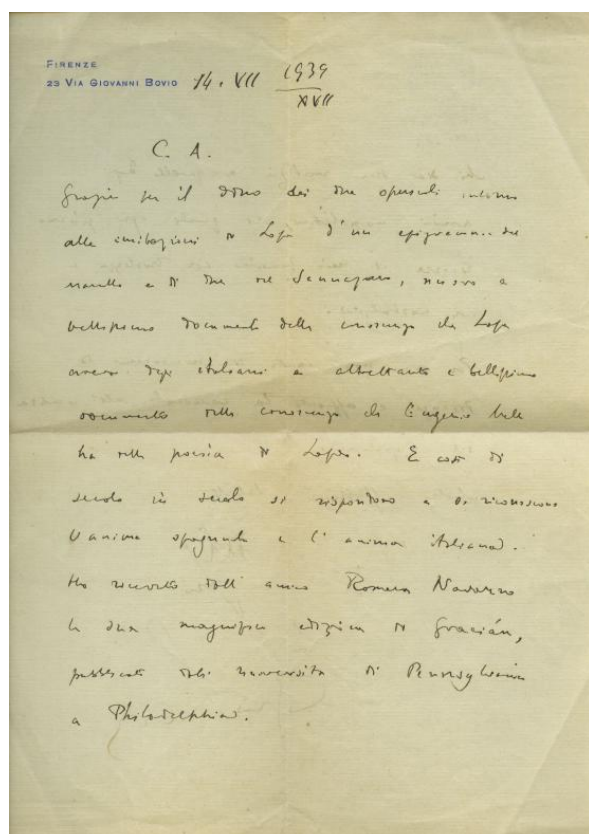 FIRENZE
23 VIA GIOVANNI BOVIO 14. VII 1939
XVII
C. A.
Grazie per il dono dei due opuscoli intorno
alle imitazioni di Lope d'un epigramma del
e di due del Sannazaro, nuovo e
bellissimo documento della conoscenza che Lope
aveva degli italiani e altrettanto e bellissimo
documento della conoscenza che Eugenio Mele
ha della poesia di Lope. E così di
secolo in secolo si rispondono e si riconoscono
l'anima spagnuola e l'anima italiana.
Ho ricevuto dall'amico Romera Navarro
la sua magnifica edizione di Gracián,
pubblicata dalla università di Pennsylvania
a Philadelphia.